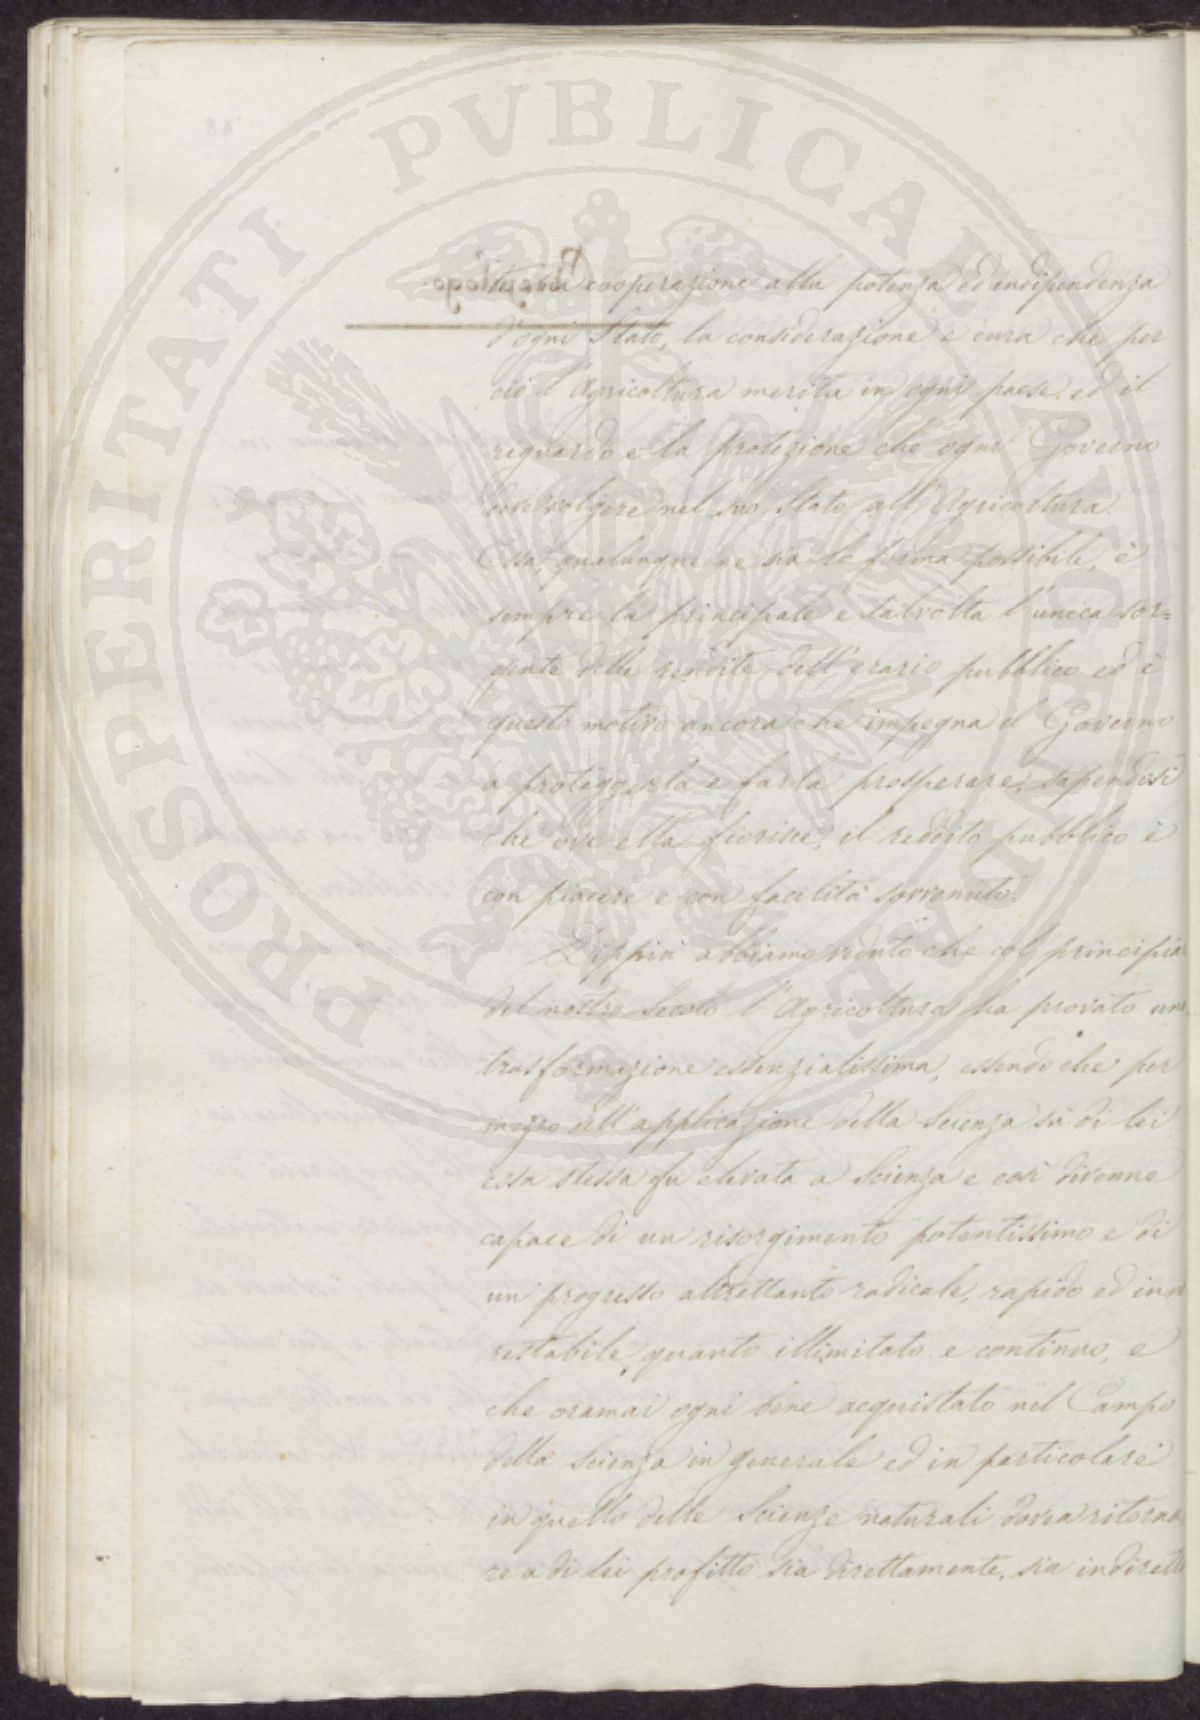 PROSPERITATI PVBLICAE AVGENDAE
la sua cooperazione alla potenza ed indipendenza
d'ogni Stato, la considerazione e cura che per
ciò l'Agricoltura merita in ogni paese, ed il
riguardo e la protezione che ogni Governo
deve volgere nel suo Stato all'Agricoltura.
Essa, qualunque ne sia la forma possibile, è
sempre la principale e talvolta l'unica sor=
gente delle rendite dell'erario pubblico ed è
questo motivo ancora che impegna il Governo
a proteggerla e farla prosperare, sapendosi
che ove ella fiorisce, il reddito pubblico è
con piacere e con facilità sovvenuto.
Dippiù abbiamo veduto che col principio
del nostro secolo l'Agricoltura ha provato una
trasformazione essenzialissima, essendo che per
mezzo dell'applicazione della Scienza su di lei
essa stessa fu elevata a Scienza e così divenne
capace di un risorgimento potentissimo e di
un progresso altrettanto radicale, rapido ed inar
restabile, quanto illimitato e continuo, e
che oramai ogni bene acquistato nel Campo
della Scienza in generale ed in particolare
in quello delle Scienze naturali dovea ritorna
re a di lei profitto sia direttamente, sia indirett